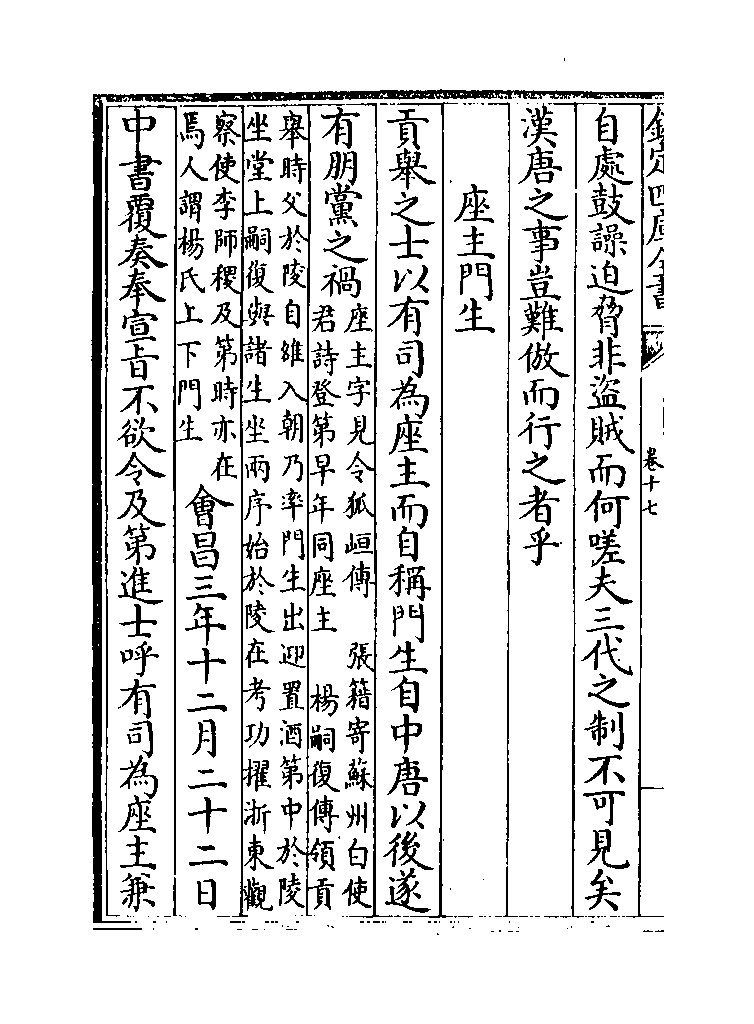 欽定四庫全書
卷十七
自處鼓譟迫脅非盜賊而何嗟夫三代之制不可見矣
漢唐之事豈難倣而行之者乎
座主門生
貢舉之士以有司為座主而自稱門生自中唐以後遂
有朋黨之禍
座主字見令狐峘傳 張籍寄蘇州白使
君詩登第早年同座主 楊嗣復傳領貢
舉時父於陵自雒入朝乃率門生出迎置酒第中於陵
坐堂上嗣復與諸生坐兩序始於陵在考功擢浙東觀
察使李師稷及第時亦在
焉人謂楊氏上下門生
會昌三年十二月二十二日
中書覆奏奉宣旨不欲令及第進士呼有司為座主兼